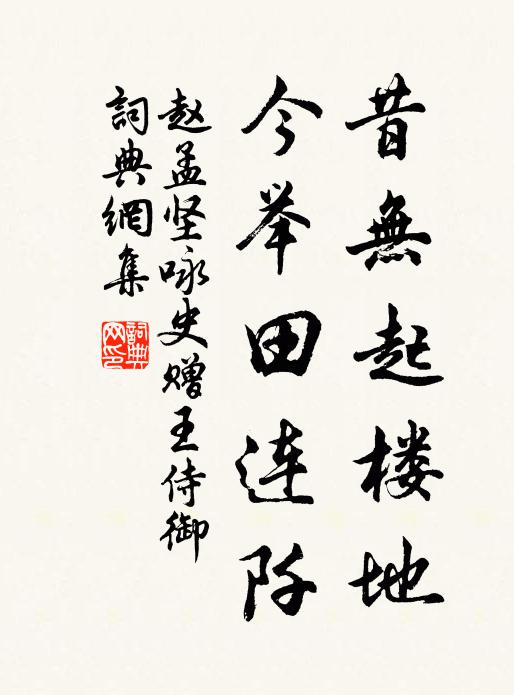 昔無起楼地
今举田连阡
赵孟坚咏史赠王侍御
詞典網集
詞典网印